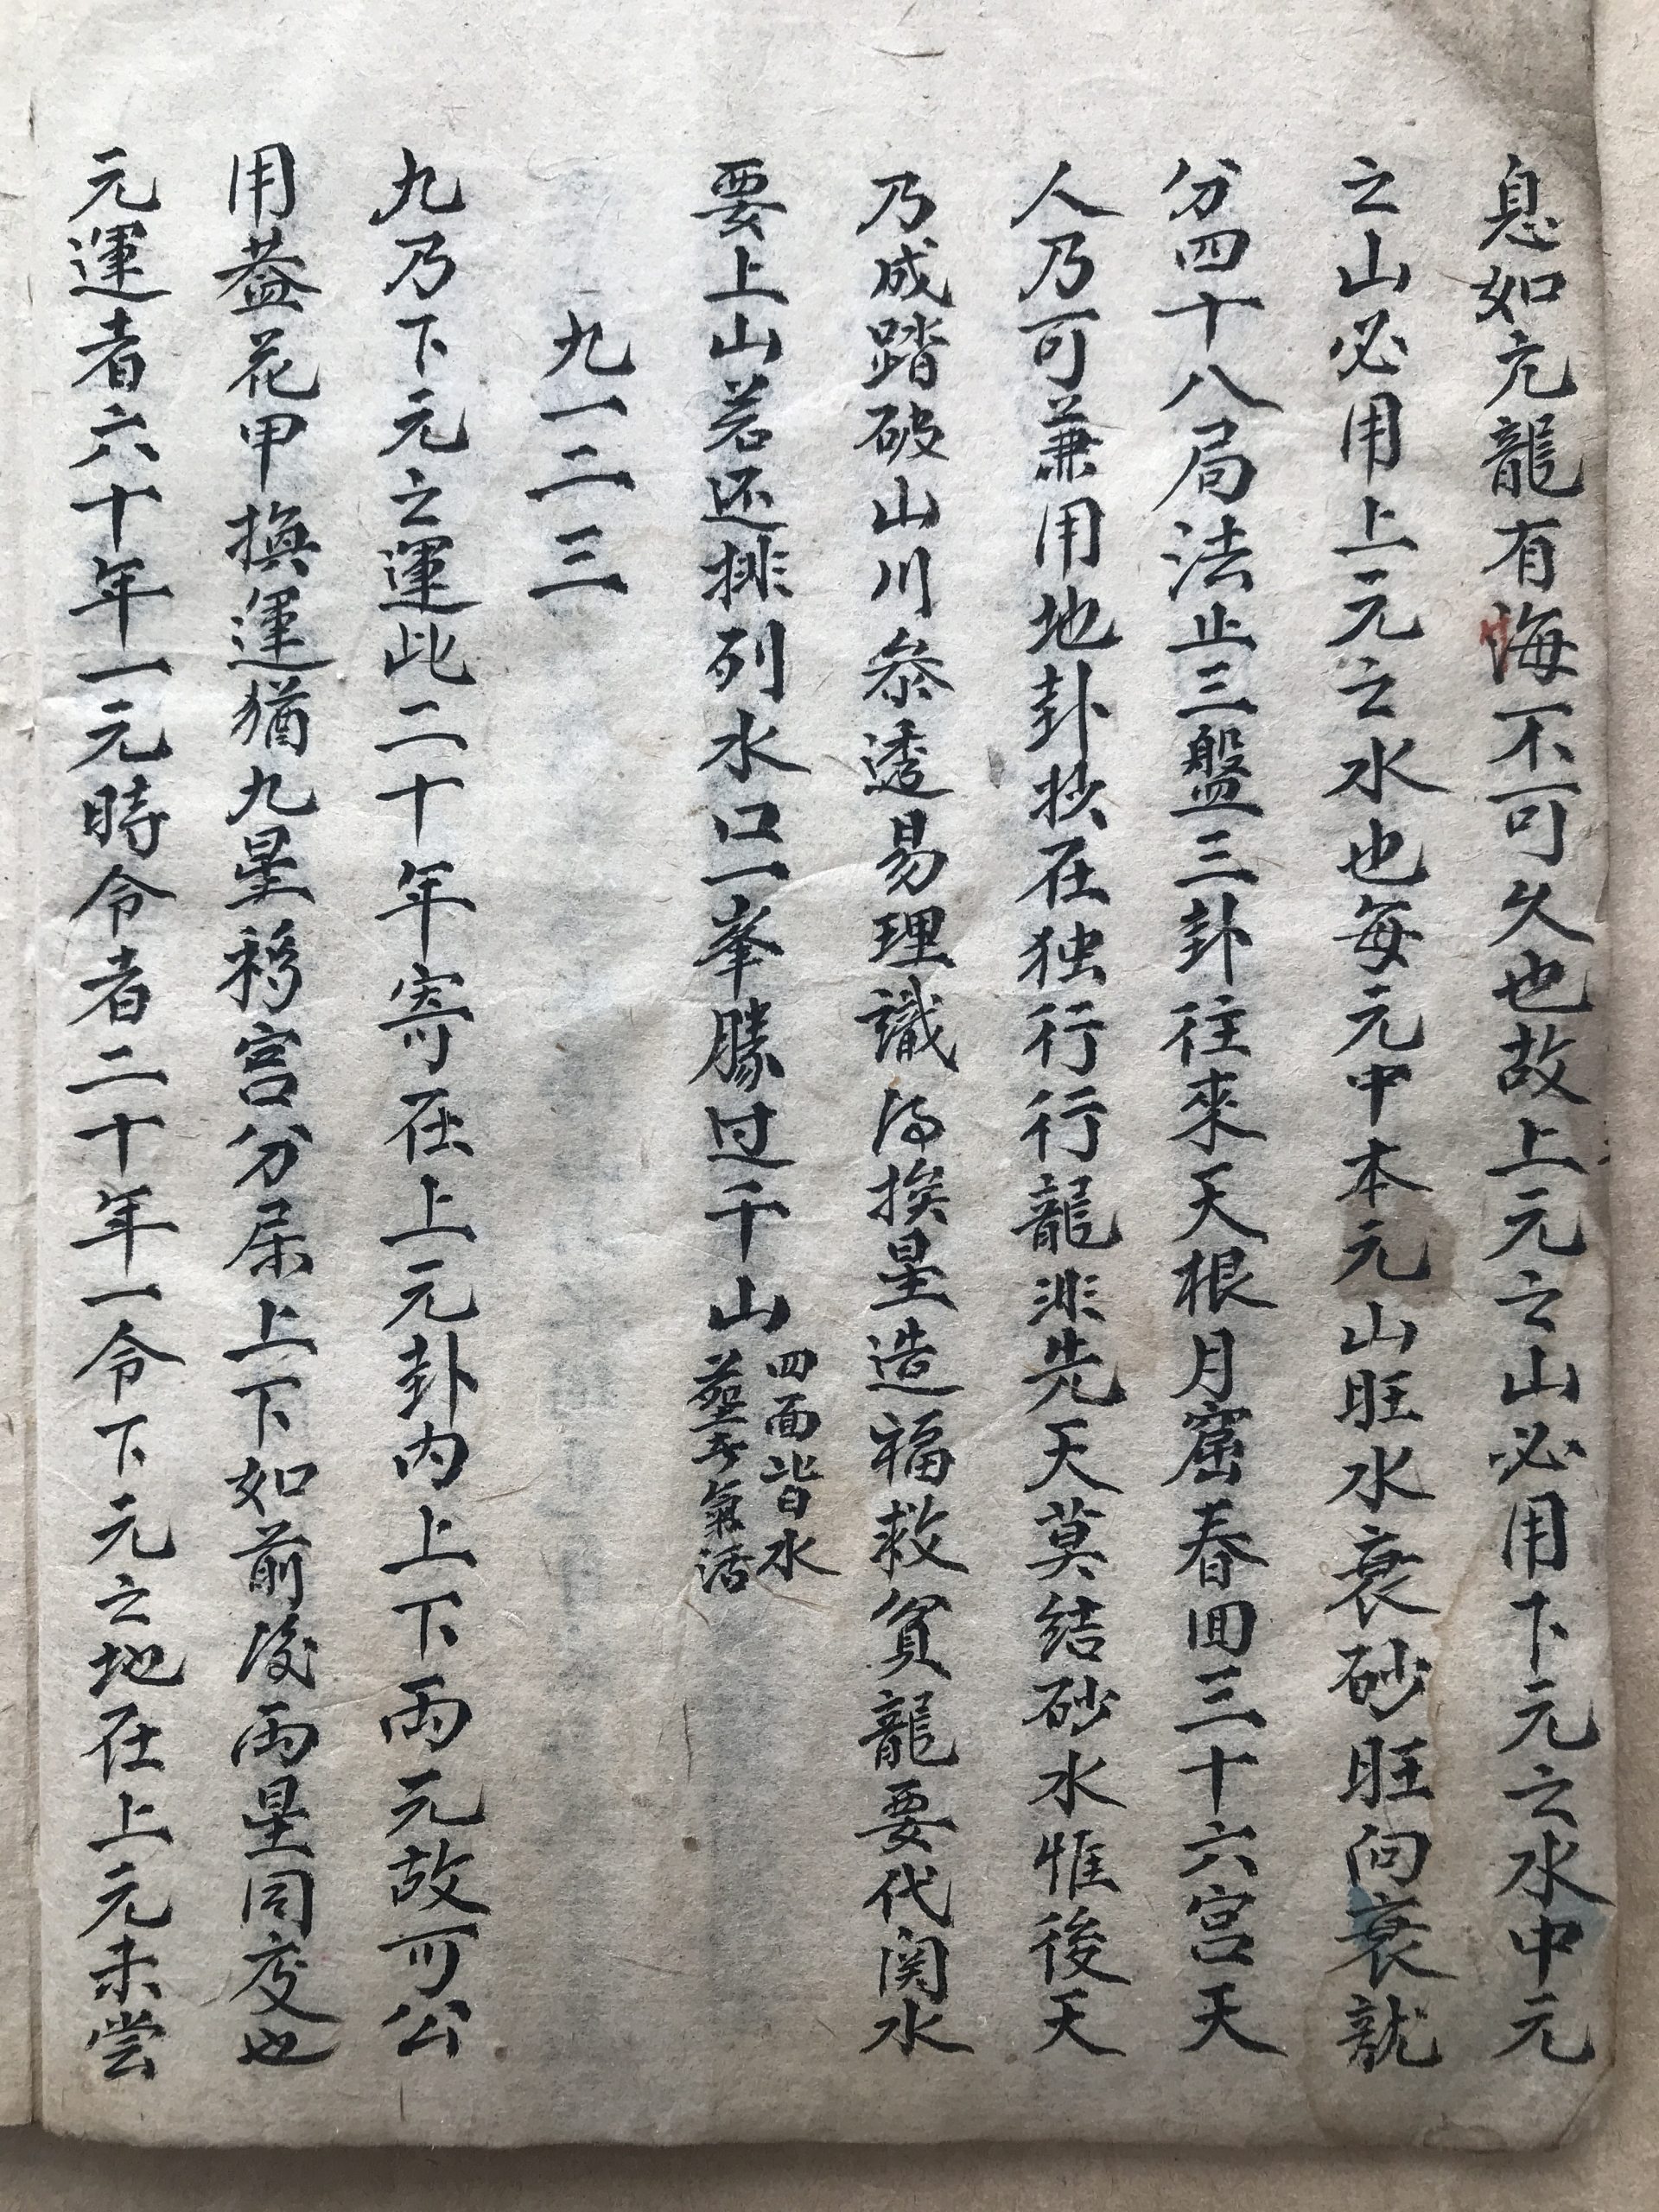 息如亢龍有悔不可久也故上元之山必用下元之水中元
之山必用上元之水也每元中本元山旺水衰砂旺向衰就
分四十八局法止三盤三卦往來天根月窟春回三十六宮天
人乃可兼用地卦抄在独行行龍非先天莫結砂水惟後天
乃成踏破山川叅透易理識得挨星造福救貧龍要代関水
要上山若还排列水口一峯勝过千山
四面皆水
塟氣活
九一二三
九乃下元之運此二十年寄在上元卦内上下兩元故可公
用葢花甲換運猶九星移宮分屬上下如前後兩星同度也
元運者六十年一元時令者二十年一令下元之地在上元未尝